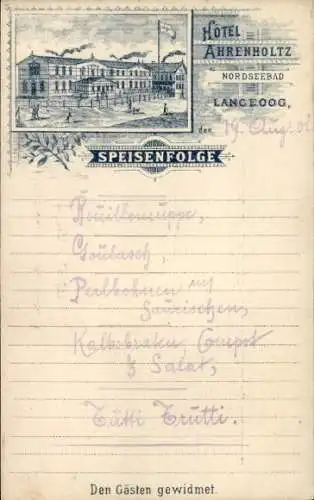 HOTEL
AHRENHOLTZ
NORDSEEBAD
LANGEOOG,
den 19. Aug.
SPEISENFOLGE
Bouillonsuppe,
Goulasch,
Perlbohnen mit
Kalbsbraten, Compot
& Salat,
Tutti Frutti.
Den Gästen gewidmet.